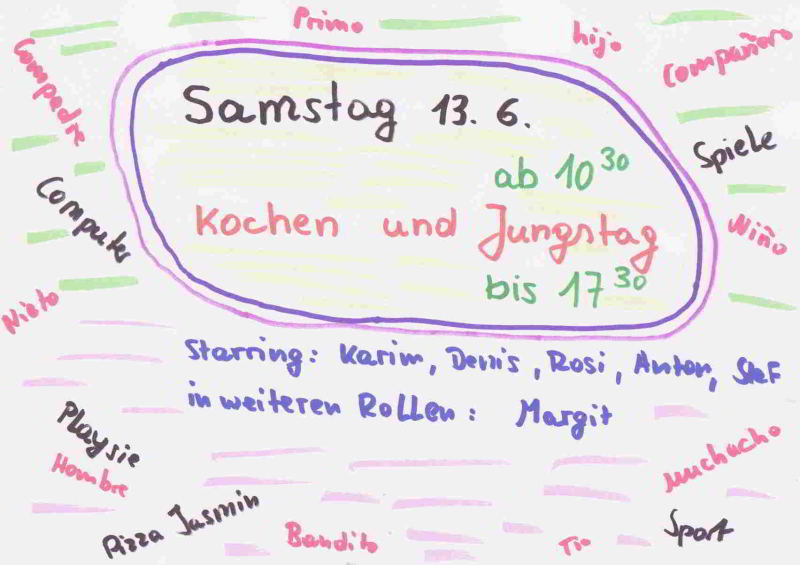 Primo
hijo
Compañero
Compadre
Samstag 13. 6.
Spiele
ab 10 30
Computer
Kochen und Jungstag
Niño
bis 17 30
Nieto
Starring: Karim, Denis, Rosi, Anton, Stef
in weiteren Rollen: Margit
Playsie
Hombre
muchacho
Pizza Jasmin
Bandito
Tio
Sport